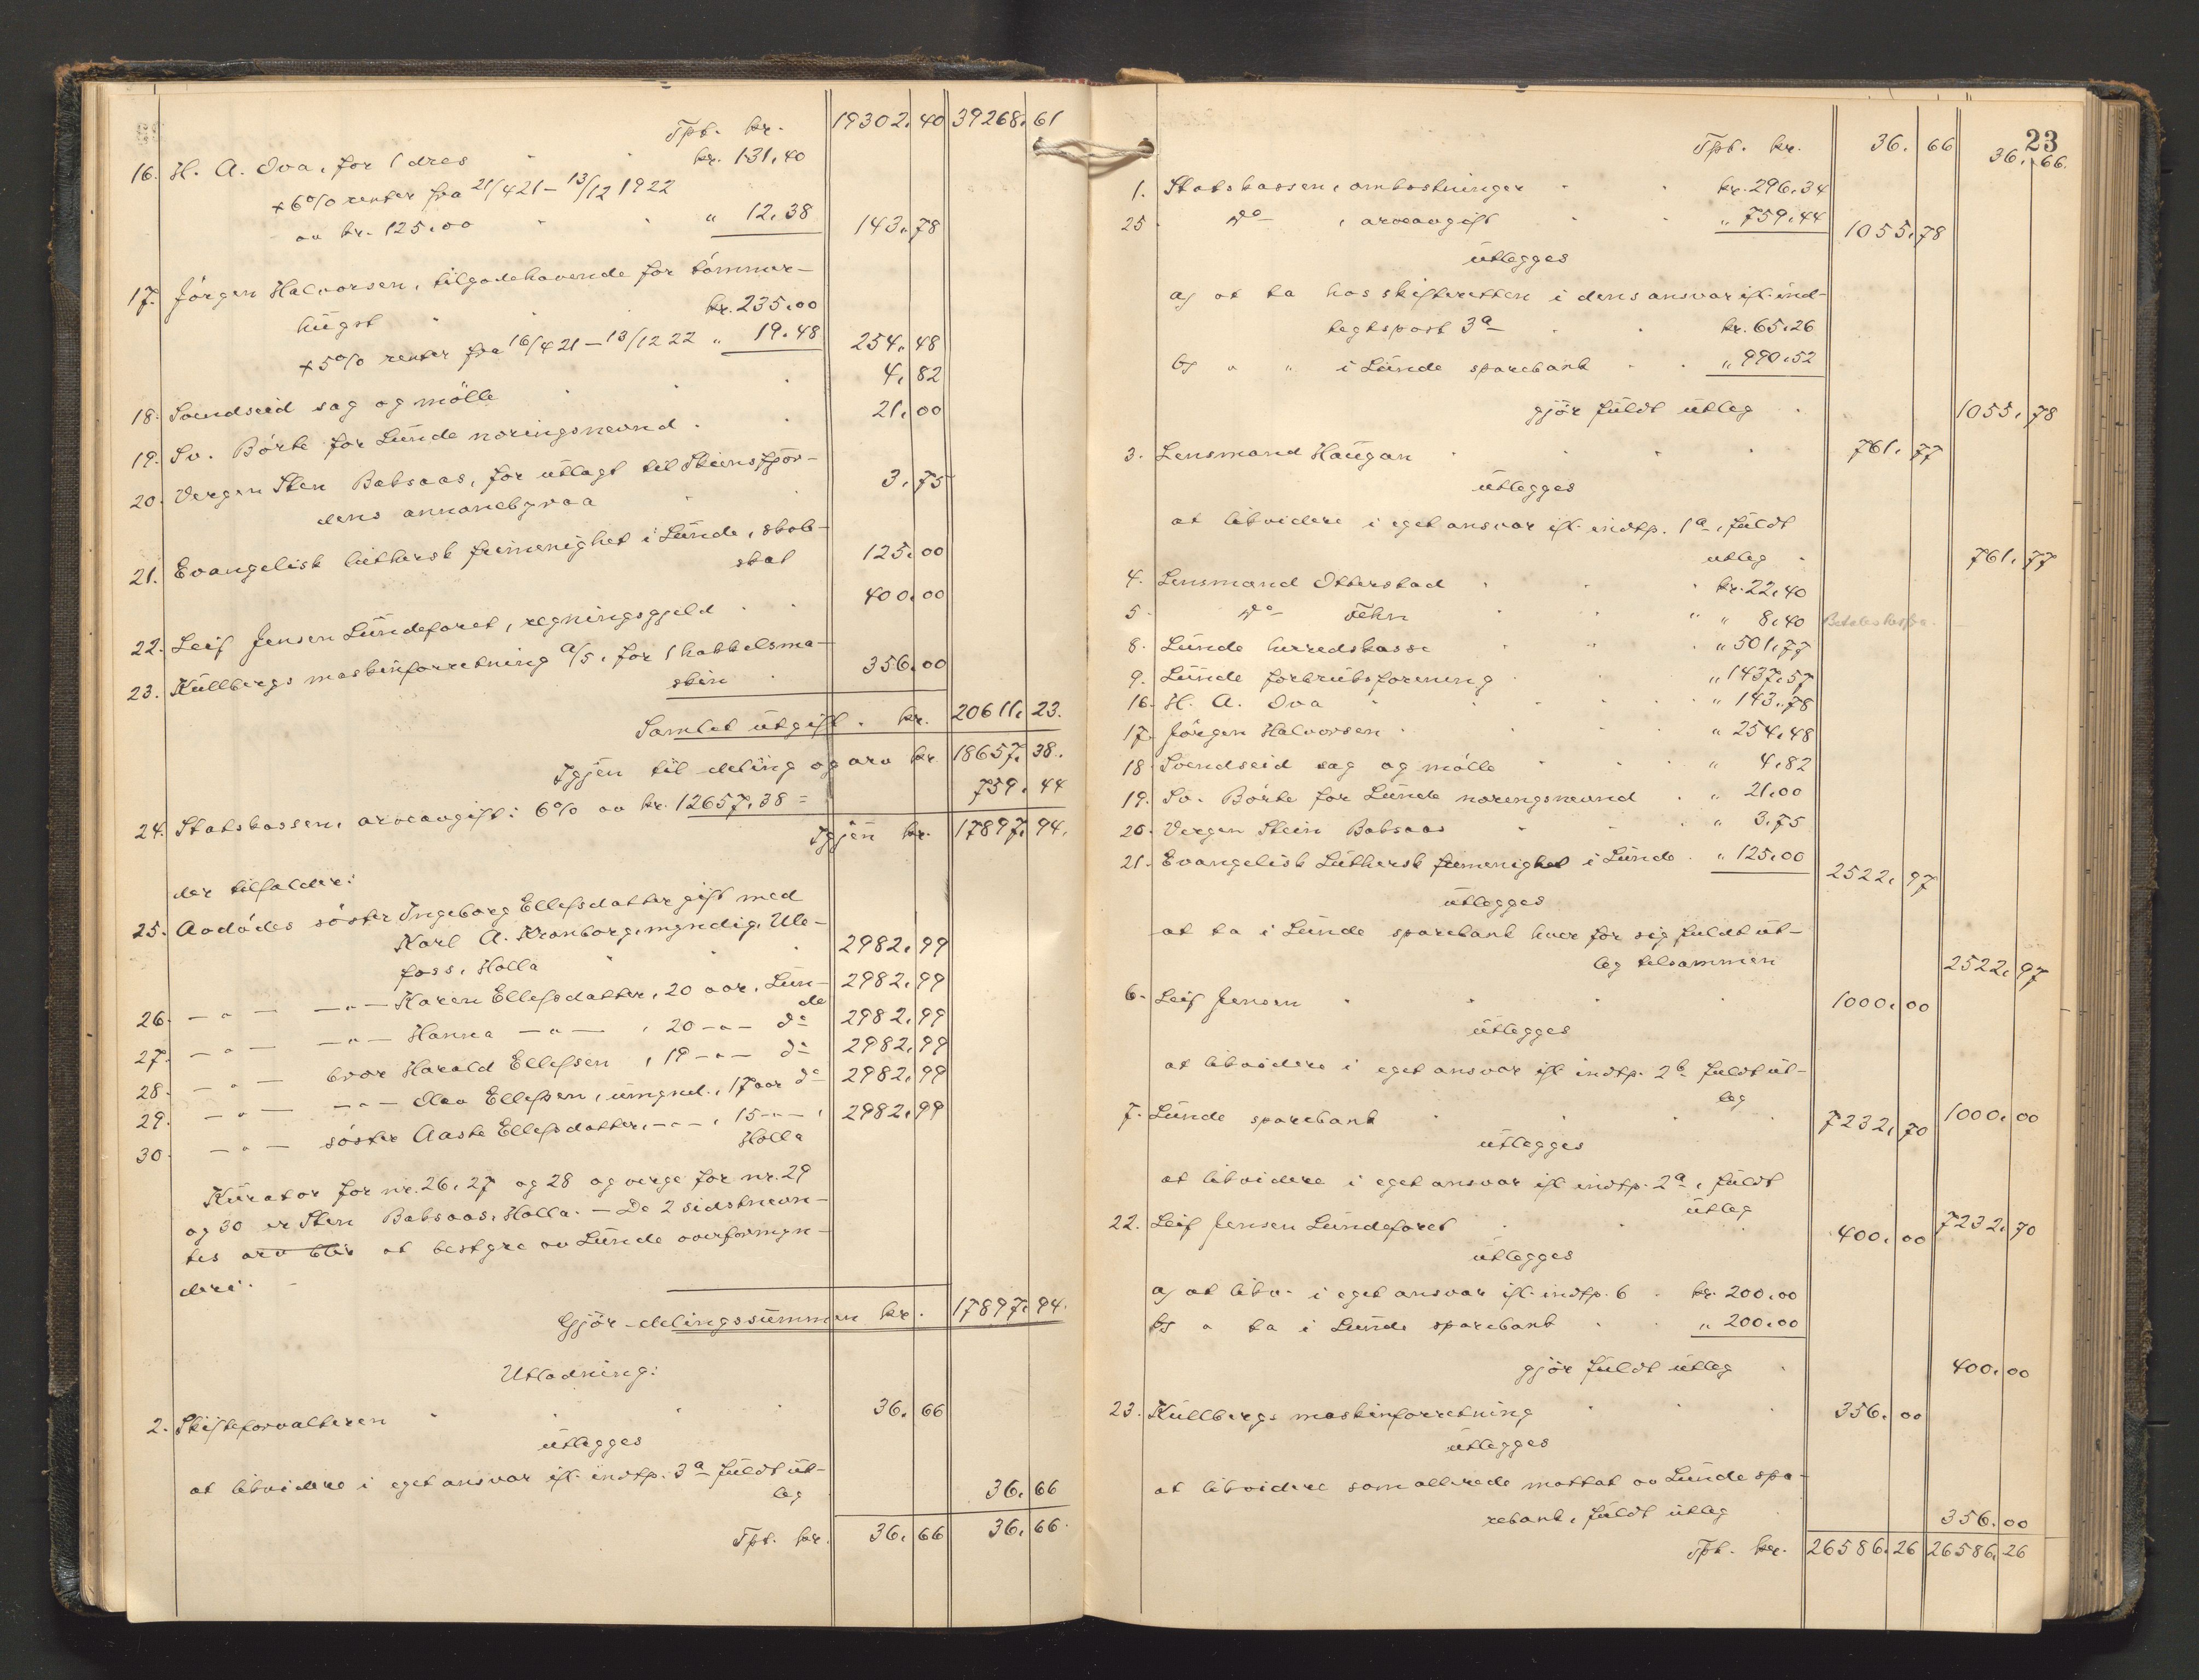 Tpt. kr. 19302,40 39268,61
16. H. A. Ova, for 1 dres " " kr. 131,40
+ 6% renter fra 21/4 21 – 13/12 1922
av kr. 125,00 " " " 12,38 143,78
17. Jörgen Halvorsen, tilgodehavende for tömmer-
hugst " " kr. 235,00
+ 5% renter fra 16/4 21 – 13/12 22 " 19,48 254,48
18. Svendseid sag og mölle " " " 4,82
19. Sv. Börte for Lunde næringsnevnd . . 21,00
20. Vergen Sten Babsaas, for utlagt til Skiensfjor-
dens annoncebyraa " " 3,75
21. Evangelisk luthersk frimenighet i Lunde, skole-
skat 125,00
22. Leif Jensen Lundefaret, regningsgjeld . . 400,00
23. Kullbergs maskinforretning A/S, for 1 hakkelsma-
skin . 356,00
Samlet utgift . kr. 20611,23.
Igjen til deling og arv kr. 18657,38.
24. Statskassen, arveavgift: 6% av kr. 12657,38 = 759,44
Igjen kr. 17897,94.
der tilfalder:
25. Avdödes söster Ingeborg Ellefsdatter gift med
Karl A. Kronborg, myndig, Ule-
foss, Holla " " 2982,99
26. — " — — " — Karen Ellefsdatter, 20 aar, Lun-
de 2982,99
27. — " — — " — Hanna — " — , 20 — " — do 2982,99
28. — " — bror Harald Ellefsen , 19 — " — do 2982,99
29. — " — — " — Olav Ellefsen, umynd., 17 aar do 2982,99
30. — " — söster Aaste Ellefsdatter, — " — , 15 — " — ,
Holla 2982,99
Kurator for nr. 26, 27 og 28 og verge for nr. 29
og 30 er Sten Babsaas, Holla. – De 2 sidstnevn-
tes arv blir at bestyre av Lunde overformyn-
deri.
Gjör delingssummen kr. 17897,94.
Utlodning:
2. Skifteforvalteren " " " " 36,66
utlegges
at likvidere i eget ansvar ifl. indtp. 3a fuldt ut-
leg 36,66
Tpt. kr. 36,66 36,66.
23
Tpt. kr. 36,66 36,66.
1. Statskassen, omkostninger " " kr. 296,34
25. do , arveavgift " " " 759,44 1055,78
utlegges
a) at ta hos skifteretten i dens ansvar ifl. ind-
tegtspost 3a " " kr. 65,26
b) " " i Lunde sparebank . . " 990,52
gjör fuldt utleg . 1055,78
3. Lensmand Haugan . . . . 761,77
utlegges
at likvidere i eget ansvar ifl. indtp. 1a, fuldt
utleg . 761,77
4. Lensmand Otterstad . . . kr. 22,40
5. do Fehn " " " " 8,40
8. Lunde herredskasse . . . " 501,77
9. Lunde forbruksforening . . " 1437,57
16. H. A. Ova . . . . " 143,78
17. Jörgen Halvorsen . . . " 254,48
18. Svendseid sag og mölle . . . " 4,82
19. Sv. Börte for Lunde næringsnevnd . " 21,00
20. Vergen Stein Babsaas . . . " 3,75
21. Evangelisk Luthersk frimenighet i Lunde . " 125,00 2522,97
utlegges
at ta i Lunde sparebank hver for sig fuldt ut-
leg tilsammen 2522,97
6. Leif Jensen " " " " 1000,00
utlegges
at likvidere i eget ansvar ifl. indtp. 2b fuldt ut-
leg 1000,00
7. Lunde sparebank . . . . 7232,70
utlegges
at likvidere i eget ansvar ifl. indtp. 2a, fuldt
utleg 7232,70
22. Leif Jensen Lundefaret . . . 400,00
utlegges
a) at likv. i eget ansvar ifl. indtp. 6 . kr. 200,00
b) " ta i Lunde sparebank . . " 200,00
gjör fuldt utleg . 400,00
23. Kullbergs maskinforretning . . . 356,00
utlegges
at likvidere som allerede mottat av Lunde spa-
rebank, fuldt utleg . 356,00
Tpt. kr. 26586,26 26586,26